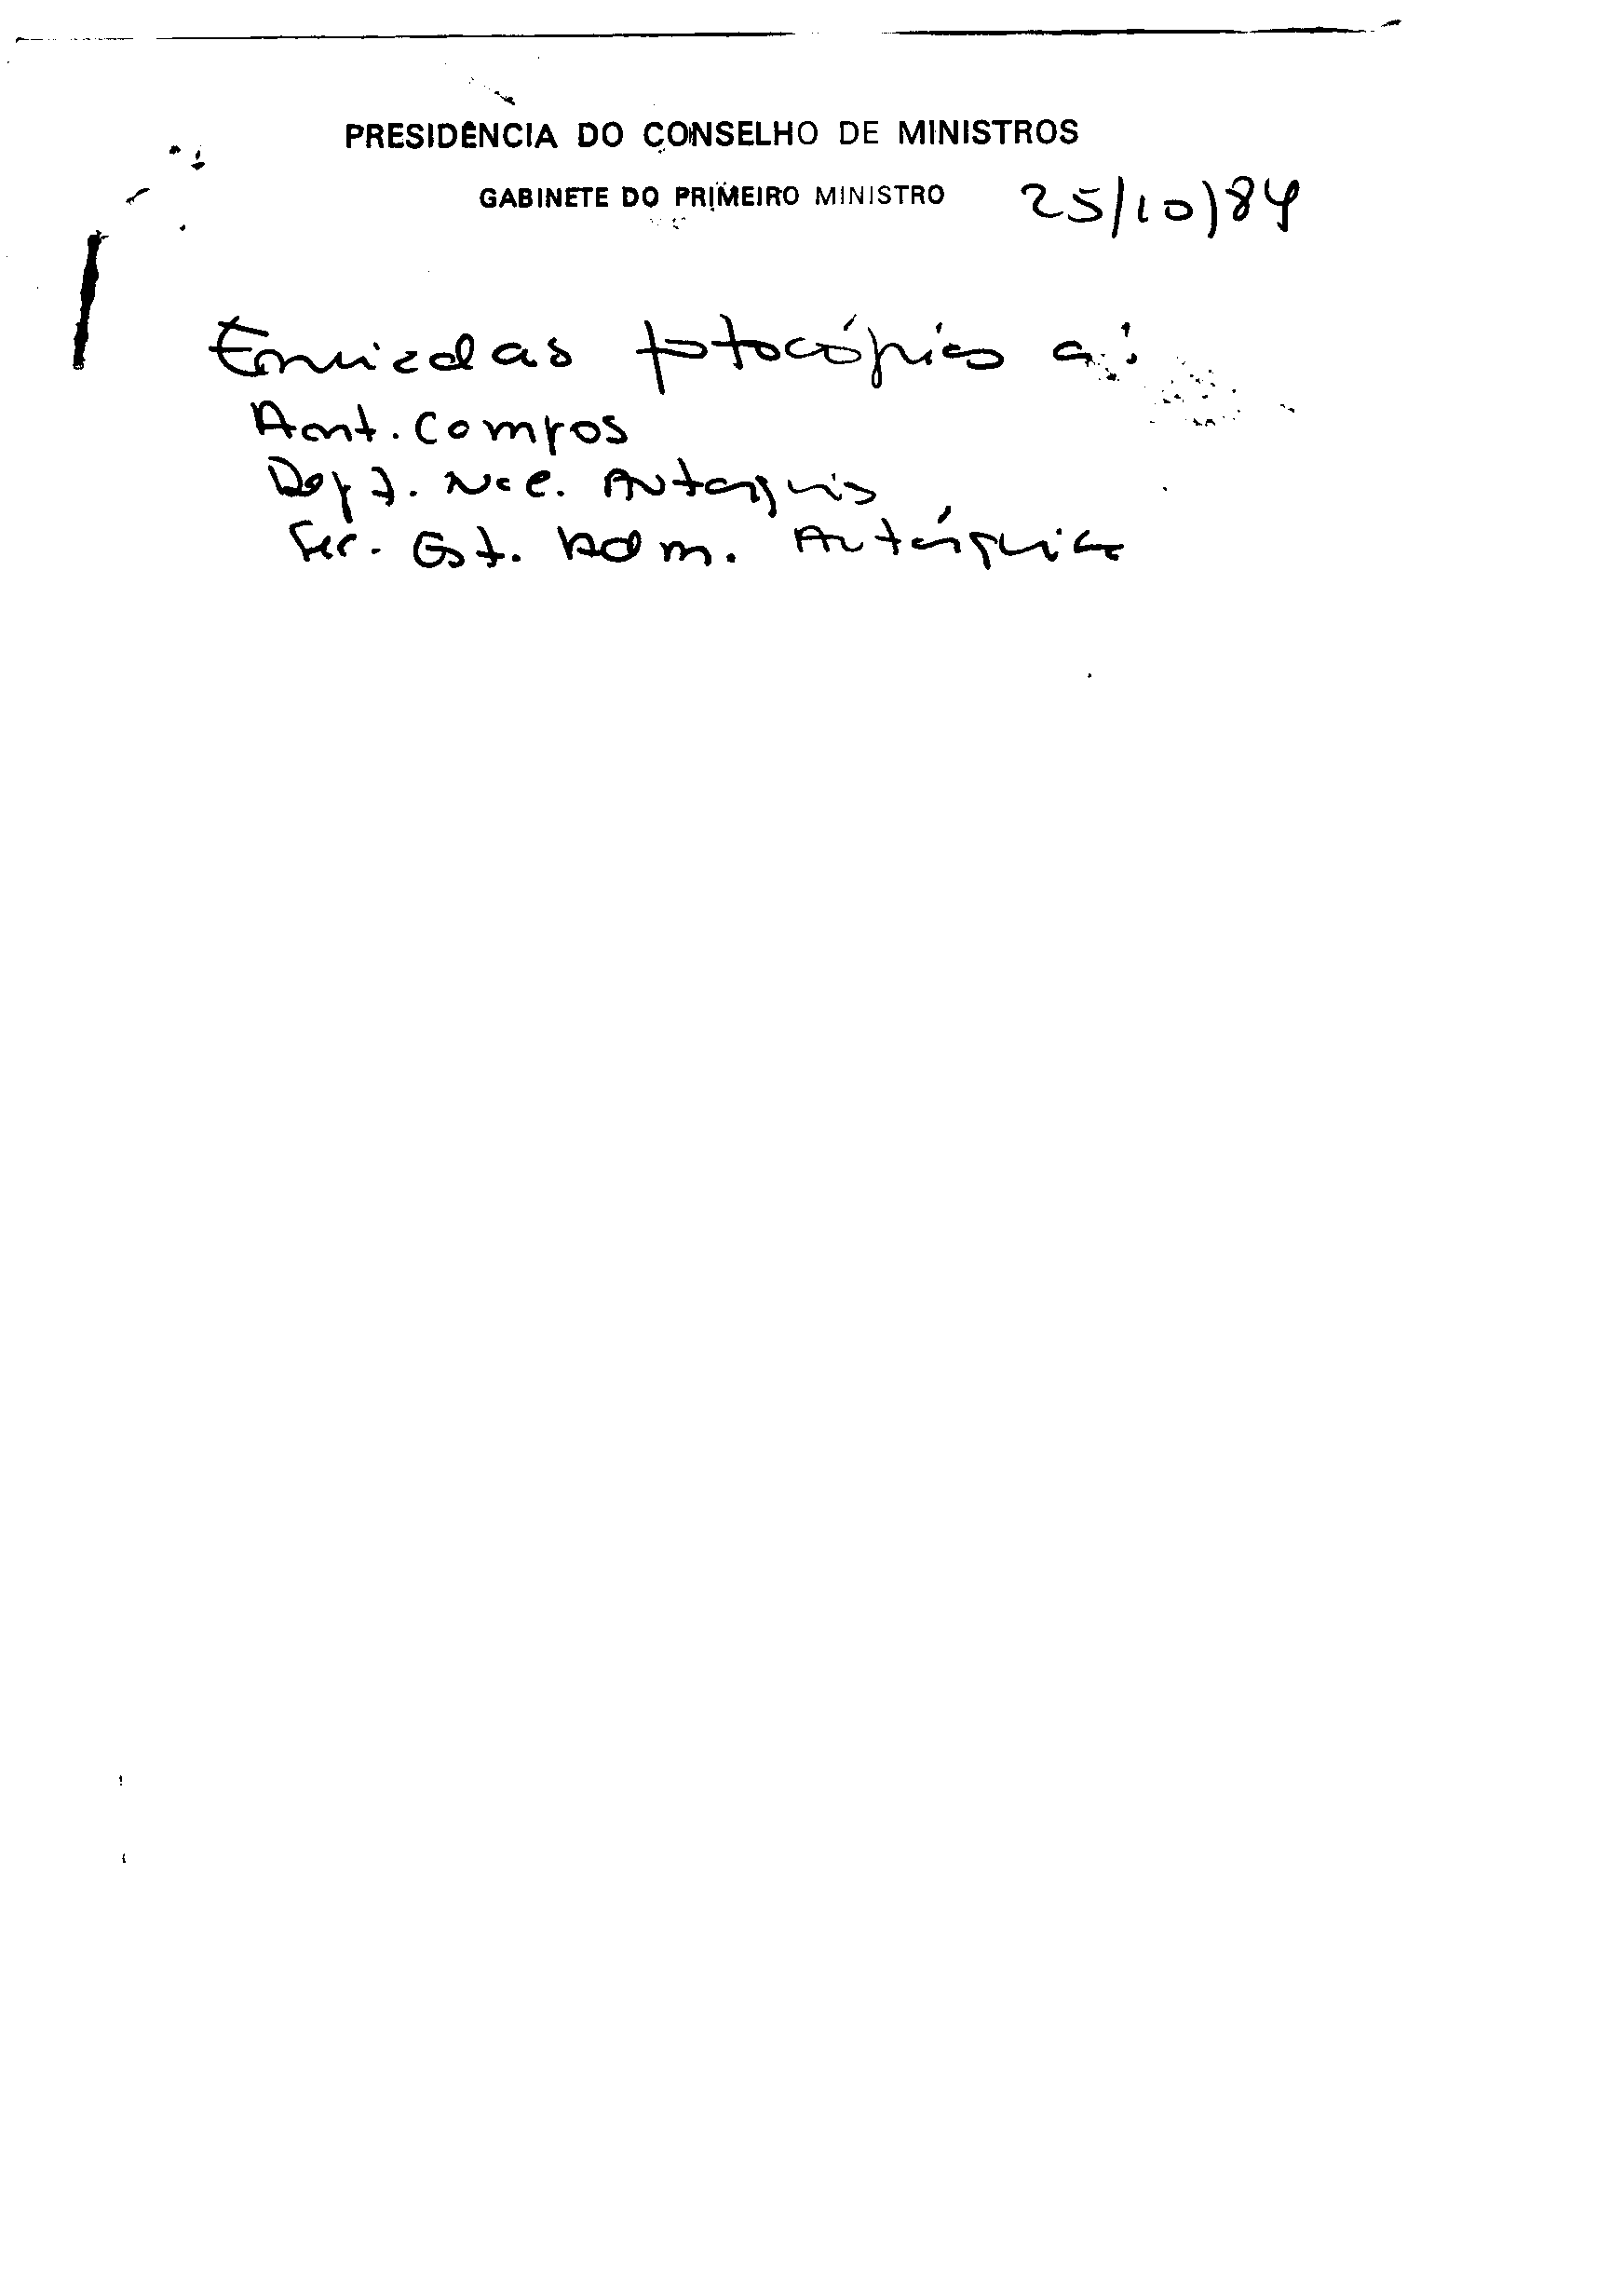 PRESIDÊNCIA DO CONSELHO DE MINISTROS
GABINETE DO PRIMEIRO MINISTRO 25/10/84
Enviadas fotocópias a:
Ant. Campos
Dept. Nac. Autarquias
Sec. Est. Adm. Autárquica